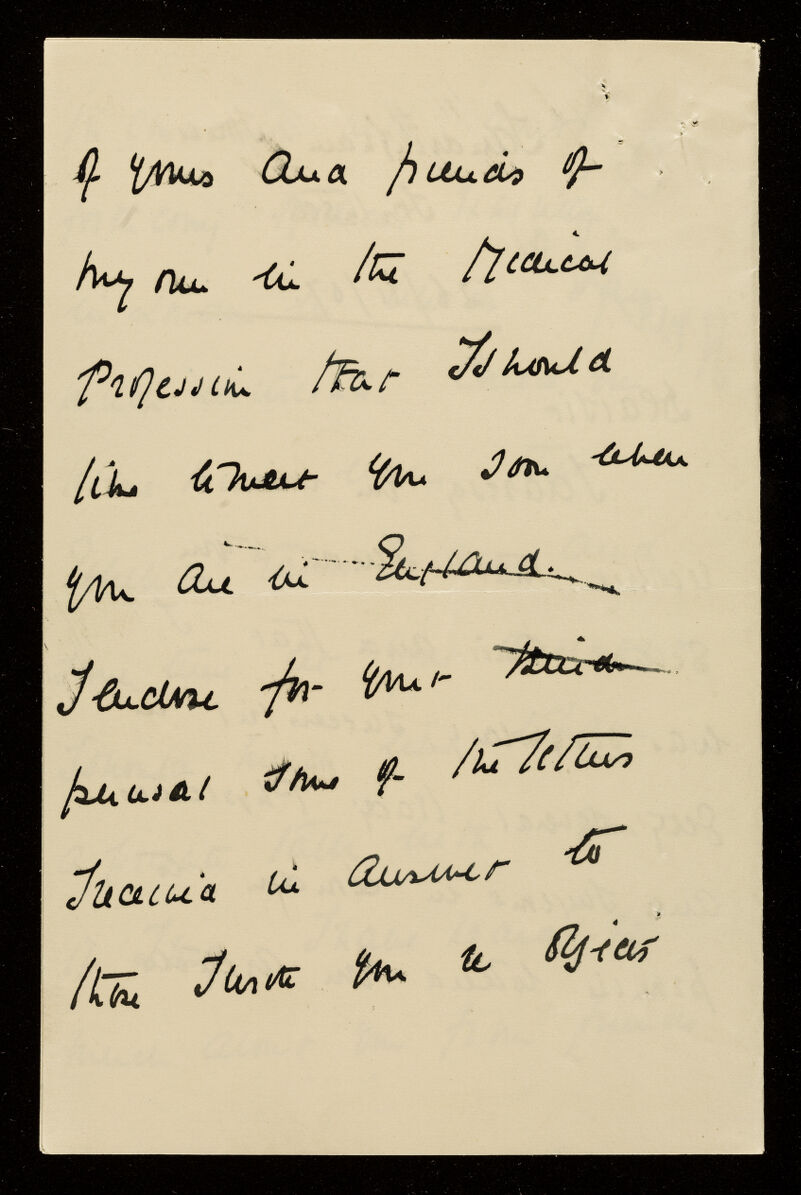 of yours and friends of
my own in the Medical
Profession that I should
like to meet you soon when
you are in England.
I enclose for your kind
perusal some of the letters
I received in answer to
those I wrote you re objects